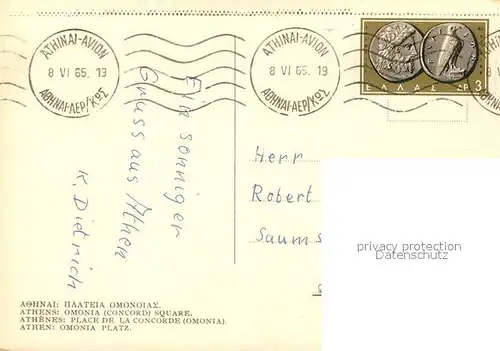 ΑΤΗΙΝΑΙ-ΑVΙΟΝ
8 VI 65. 19
ΑΘΗΝΑΙ-ΑΕΡ/ΚΩΣ
ATHINAI-AVION
8 VI 65. 19
ΑΘΗΝΑΙ-ΑΕΡ/ΚΩΣ
ΕΛΛΑΣ ΔΡ 3
Ein sonniger
Gruss aus Athen
K. Dietrich
Herr
Robert
Saums
privacy protection
Datenschutz
ΑΘΗΝΑΙ: ΠΛΑΤΕΙΑ ΟΜΟΝΟΙΑΣ.
ATHENS: OMONIA (CONCORD) SQUARE.
ATHÈNES: PLACE DE LA CONCORDE (OMONIA).
ATHEN: OMONIA PLATZ.